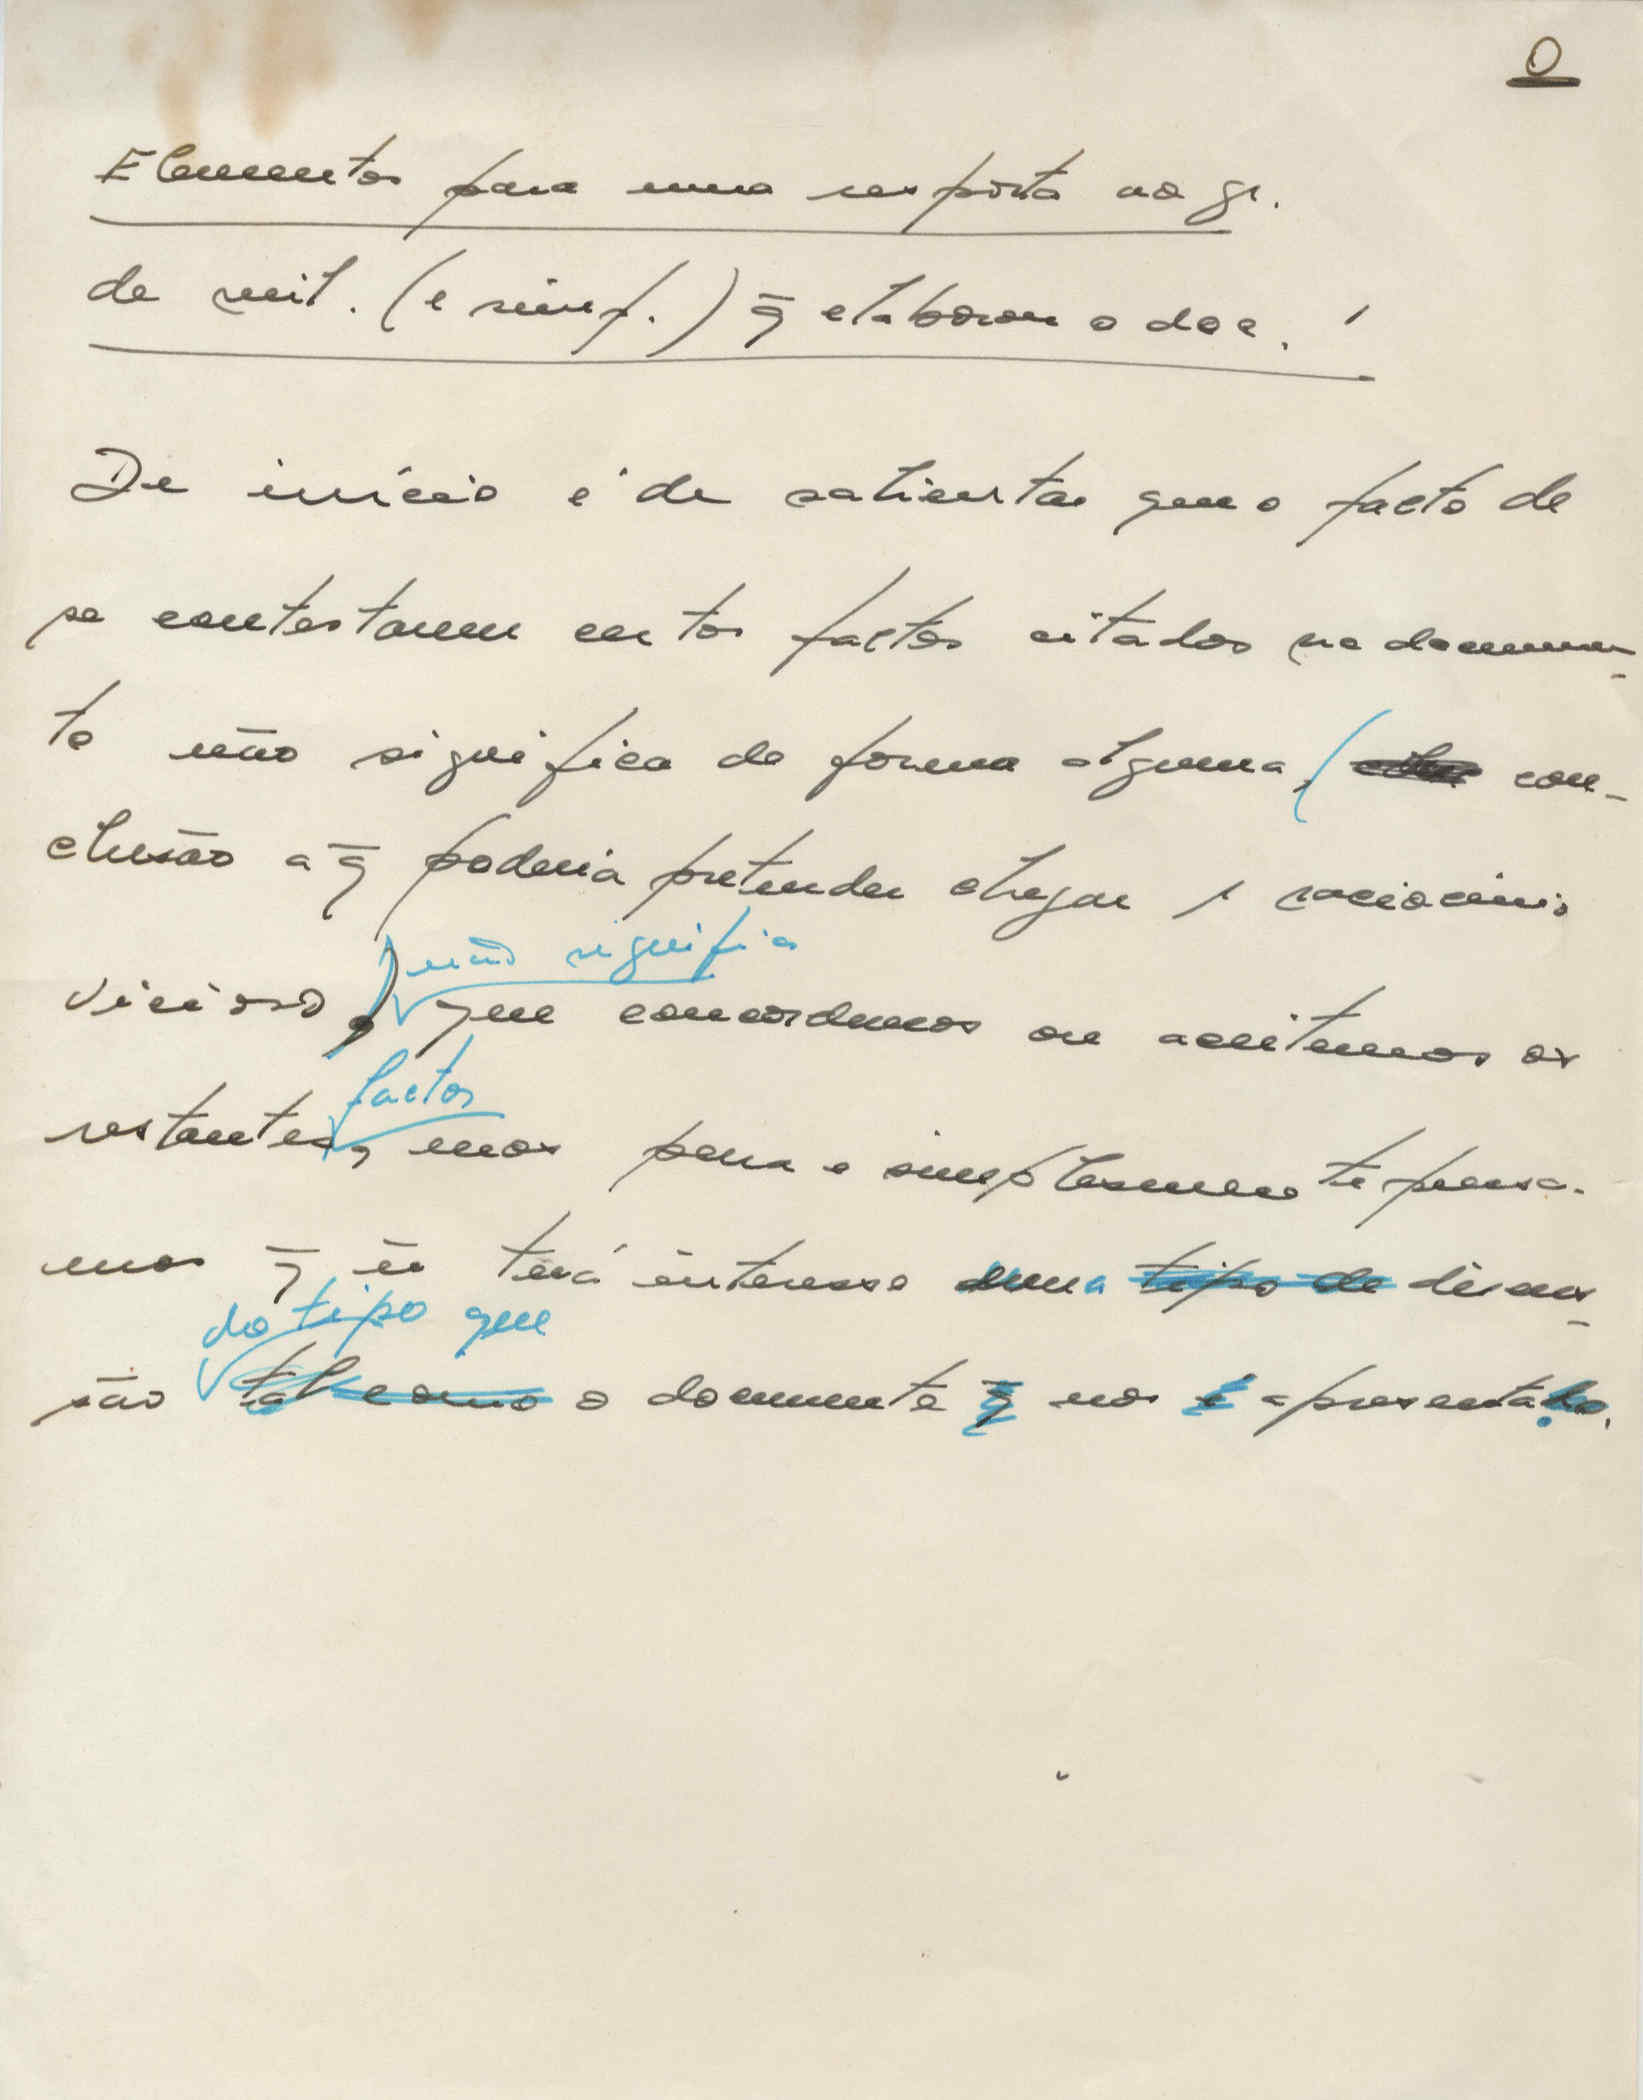 0
Elementos para uma resposta ao gr.
de mil. (e simp.) q̄ elaborou o doc. '
De início é de salientar que o facto de
se contestarem certos factos citados no documen-
to não significa de forma alguma, ( con-
clusão a q̄ poderia pretender chegar 1 raciocínio
não significa
vicioso,) que concordemos ou aceitemos os
factos
restantes, mas pura e simplesmente pensa-
mos q̄ ñ terá interesse uma tipo de discus-
do tipo que
são tal como o documento q̄ nos é apresentado.